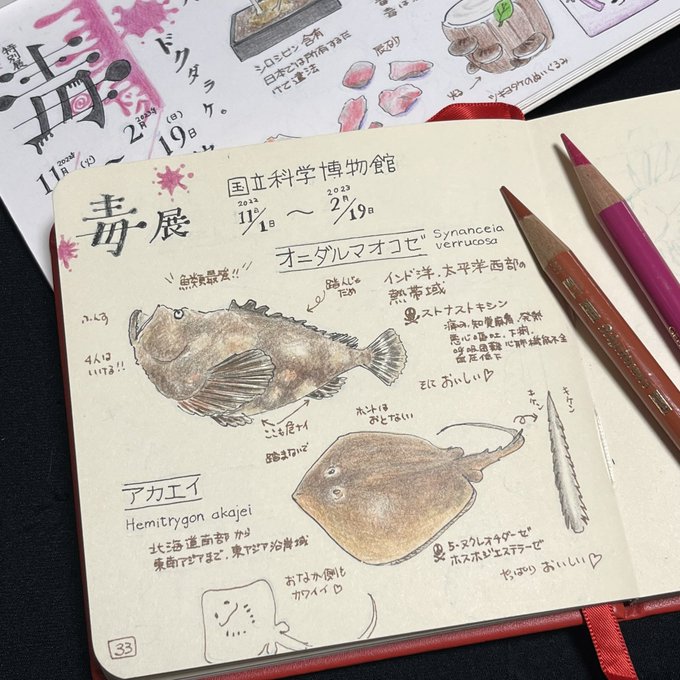 特別展
毒
ドクダラケ。
2022年
11月1日(火)
~
2023年
2月19日(日)
シロシビン含有
日本では所有するだ
けで違法
辰砂
ツキヨタケのぬいぐるみ
毒展
国立科学博物館
2022
11/1日
~
2023
2月/19日
オニダルマオコゼ
Synanceia
verrucosa
魚類最強!!
踏んじゃ
だめ
インド洋、太平洋西部の
熱帯域
ふんす
4人は
いける!!
ストナストキシン
痛み、知覚麻痺、発熱
悪心嘔吐、下痢、
呼吸困難 心肺機能不全
血圧低下
そしておいしい♡
ここも危ナイ
踏まないで
ホントは
おとなしい
キケン
キケン
アカエイ
Hemitrygon akajei
北海道南部から
東南アジアまで、東アジア沿岸域
5-ヌクレオチダーゼ
ホスホジエステラーゼ
やっぱりおいしい♡
おなか側も
カワイイ♡
33